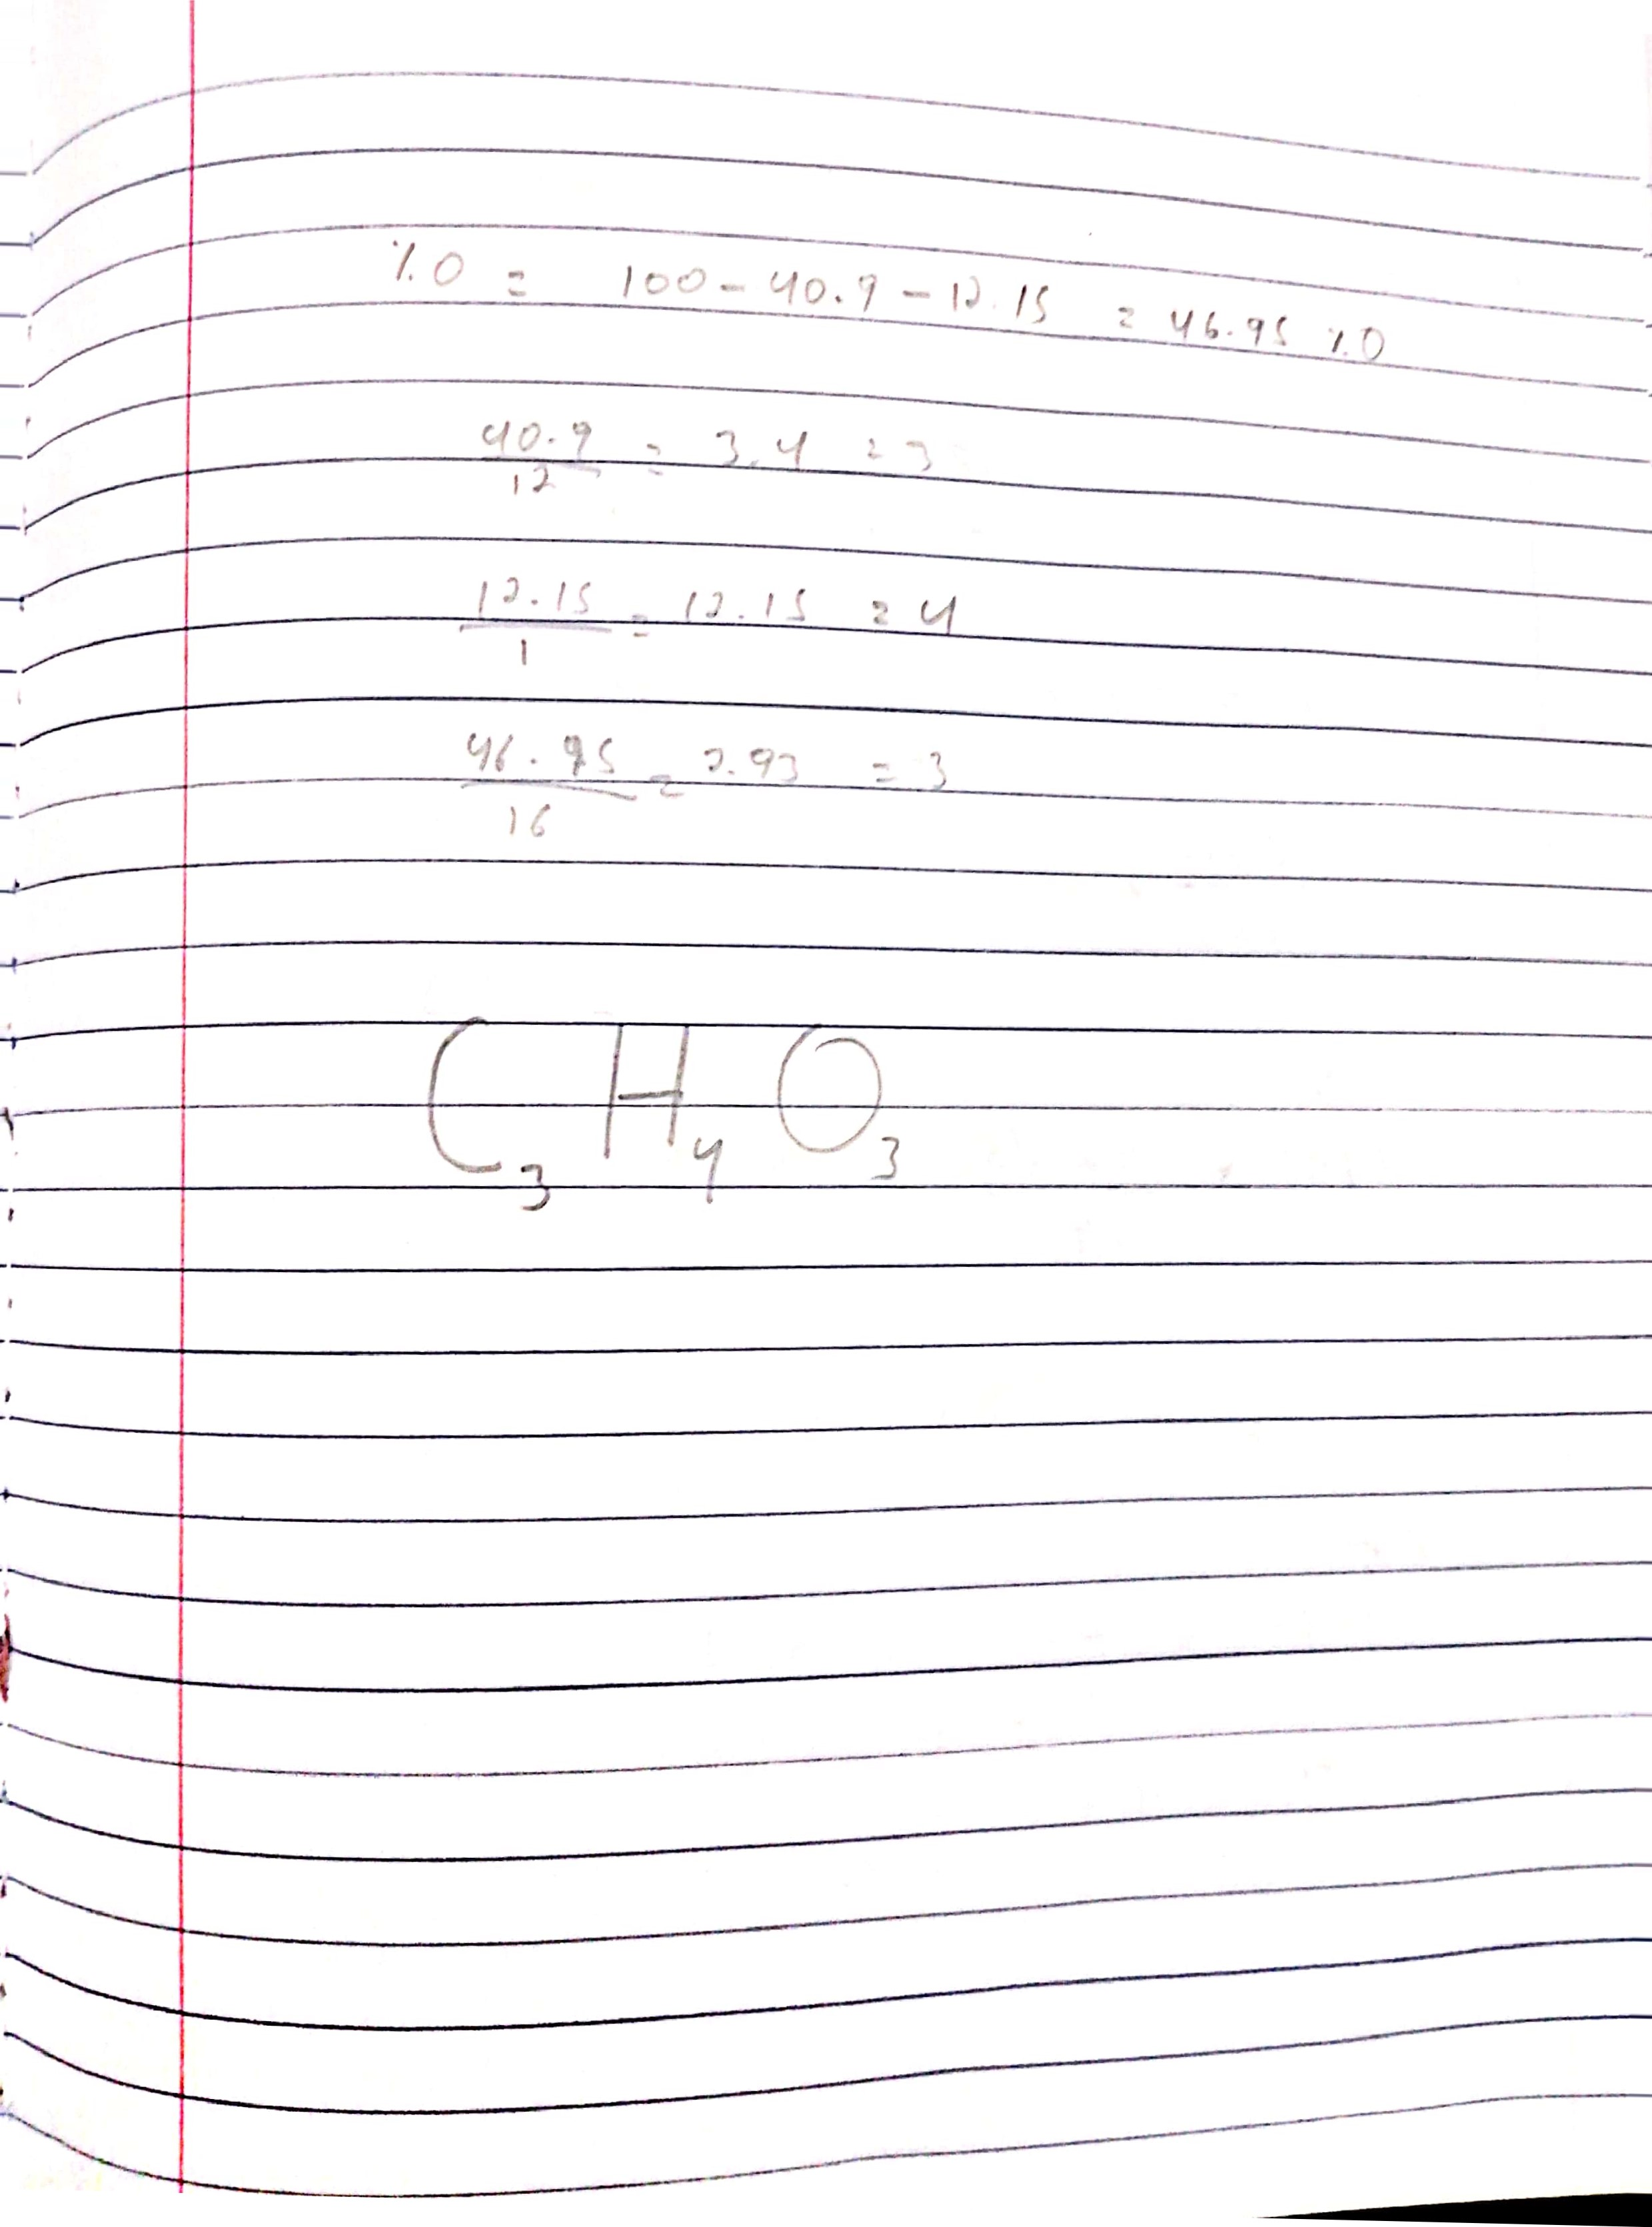 %O = 100 - 40.9 - 12.15 = 46.95 %O
40.9/12 = 3.4 = 3
12.15/1 = 12.15 = 4
46.95/16 = 2.93 = 3
C₃H₄O₃